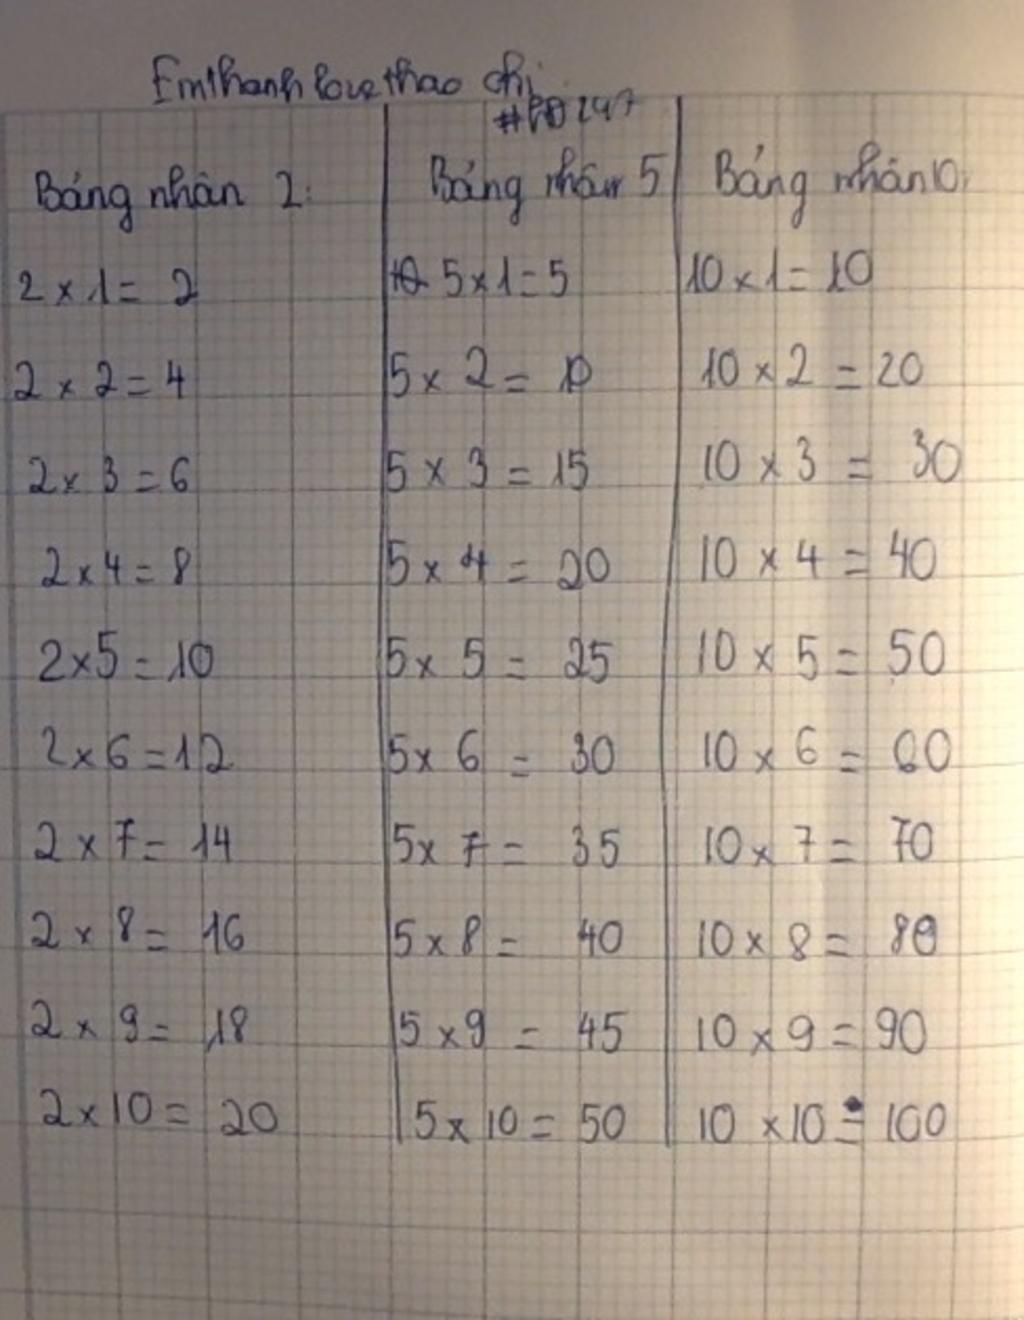 Emthanh love thao chi
Bảng nhân 2:
2 x 1 = 2
2 x 2 = 4
2 x 3 = 6
2 x 4 = 8
2 x 5 = 10
2 x 6 = 12
2 x 7 = 14
2 x 8 = 16
2 x 9 = 18
2 x 10 = 20
Bảng nhân 5
5 x 1 = 5
5 x 2 = 10
5 x 3 = 15
5 x 4 = 20
5 x 5 = 25
5 x 6 = 30
5 x 7 = 35
5 x 8 = 40
5 x 9 = 45
5 x 10 = 50
Bảng nhân 10:
10 x 1 = 10
10 x 2 = 20
10 x 3 = 30
10 x 4 = 40
10 x 5 = 50
10 x 6 = 60
10 x 7 = 70
10 x 8 = 80
10 x 9 = 90
10 x 10 = 100